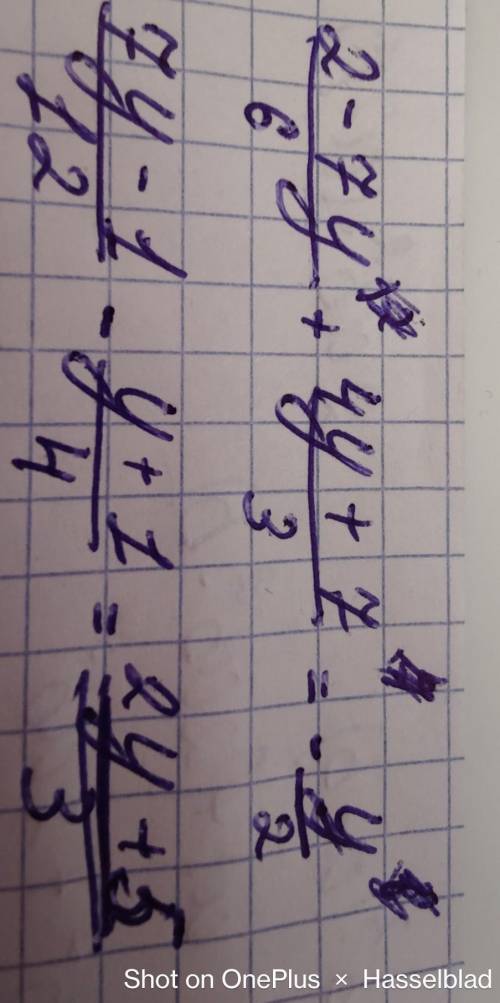 2 - 7y / 6 + 4y + 7 / 3 = - y / 2
7y - 1 / 12 - y + 1 / 4 = 2y + 5 / 3
Shot on OnePlus × Hasselblad